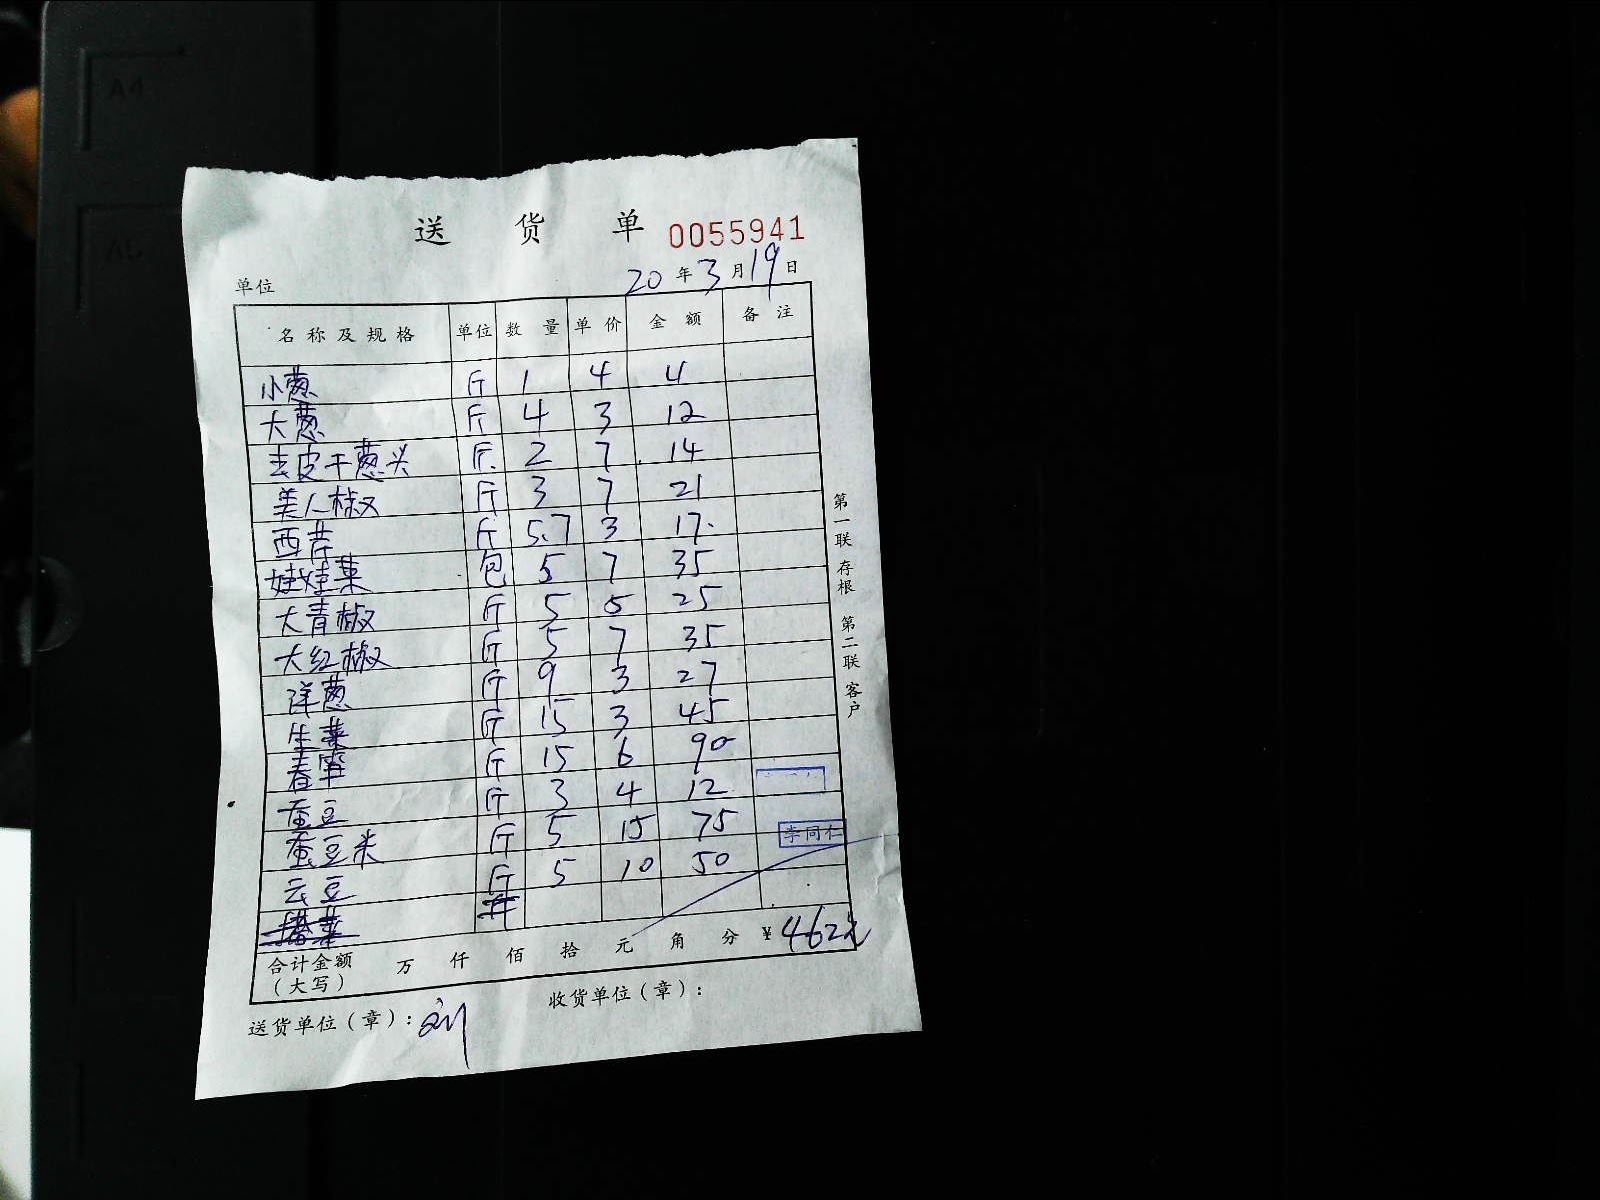 送货单 0055941
单位 20年3月19日
名称及规格 单位 数量 单价 金额 备注
小葱 斤 1 4 4
大葱 斤 4 3 12
去皮干葱头 斤 2 7 14
美人椒 斤 3 7 21
西芹 斤 5.7 3 17.
娃娃菜 包 5 7 35
大青椒 斤 5 5 25
大红椒 斤 5 7 35
洋葱 斤 9 3 27
生菜 斤 15 3 45
春笋 斤 15 6 90
蚕豆 斤 3 4 12
蚕豆米 斤 5 15 75
云豆 斤 5 10 50
李同仁
合计金额（大写） 万仟佰拾元角分 ¥462元
送货单位（章）：刘 收货单位（章）：
第一联 存根 第二联 客户
A4
A5